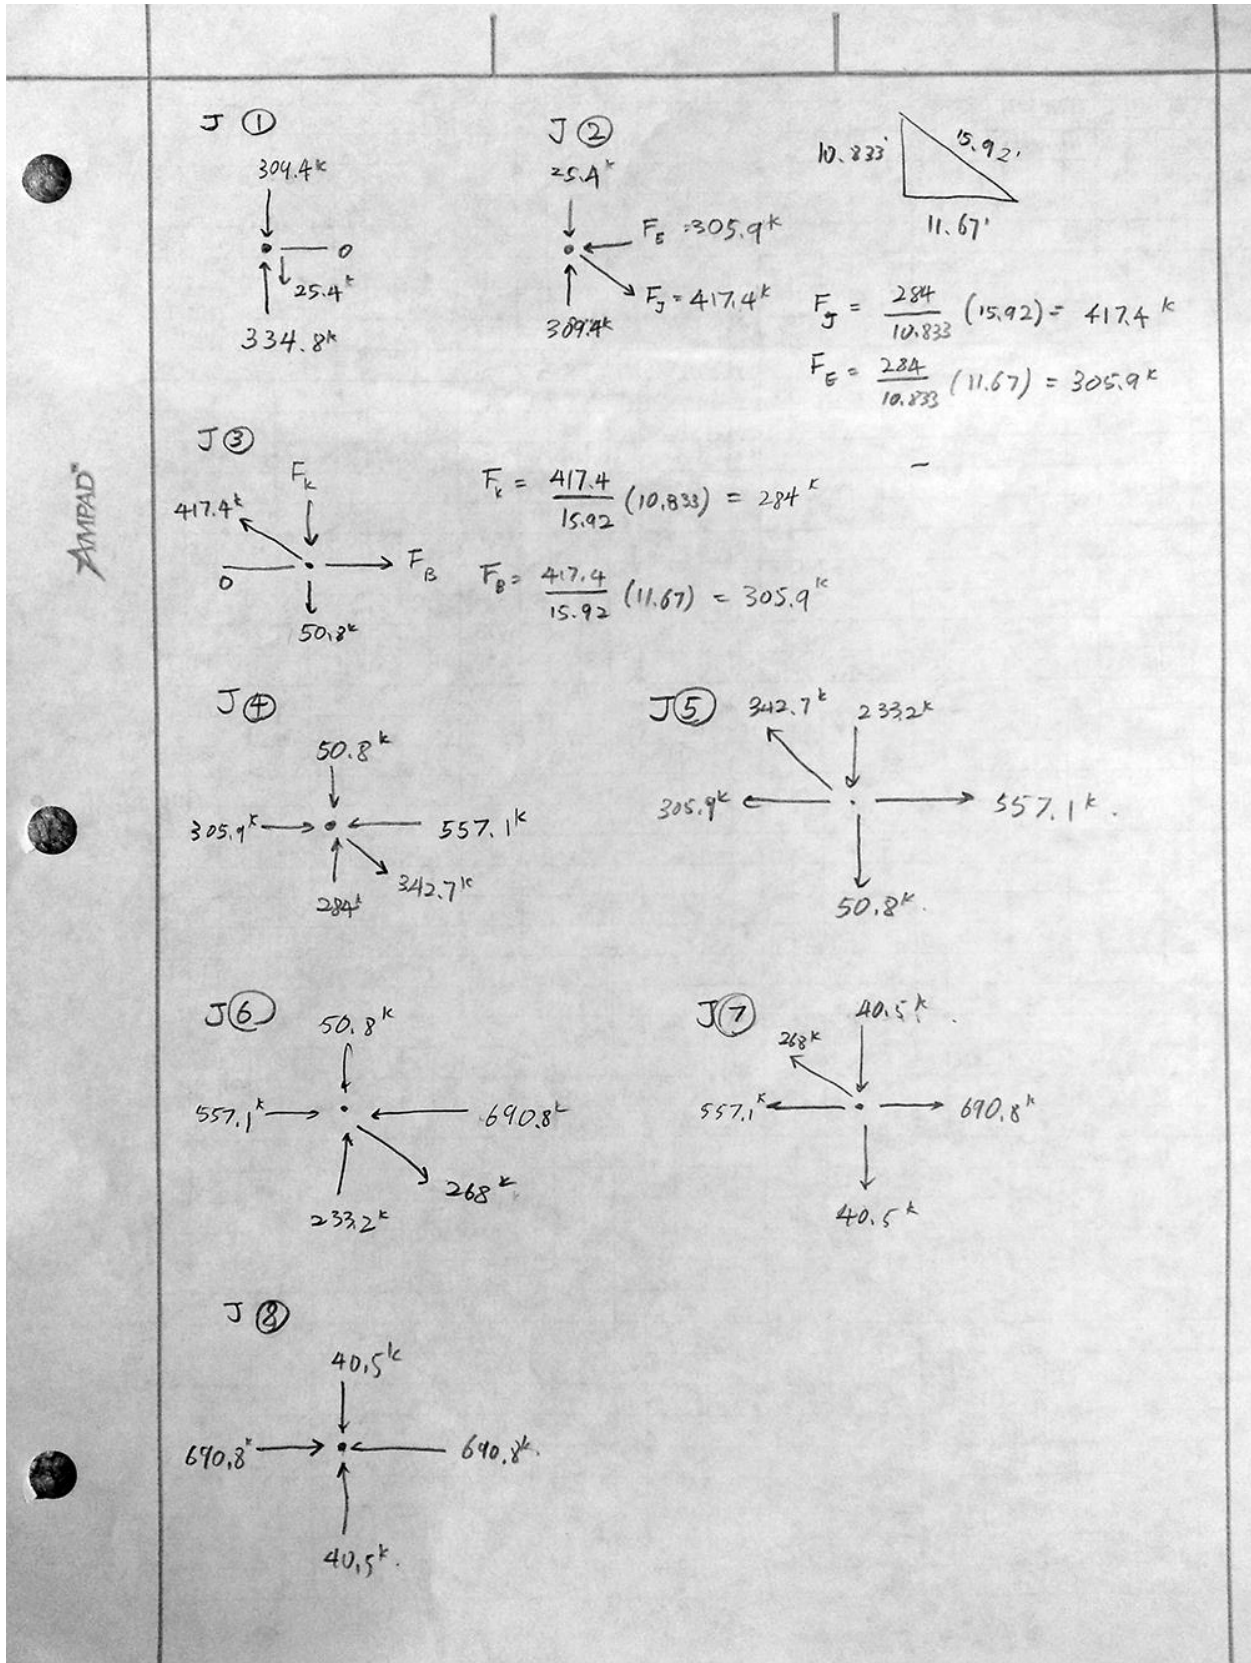 J ①
309.4ᵏ
0
25.4ᵏ
334.8ᵏ
J ②
25.4ᵏ
F_E = 305.9ᵏ
F_J = 417.4ᵏ
309.4ᵏ
10.833'
15.92'
11.67'
F_J = 284/10.833 (15.92) = 417.4ᵏ
F_E = 284/10.833 (11.67) = 305.9ᵏ
J ③
F_K
417.4ᵏ
0
F_B
50.8ᵏ
F_K = 417.4/15.92 (10.833) = 284ᵏ
F_B = 417.4/15.92 (11.67) = 305.9ᵏ
AMPAD™
J ④
50.8ᵏ
305.9ᵏ
557.1ᵏ
284ᵏ
342.7ᵏ
J ⑤
342.7ᵏ
233.2ᵏ
305.9ᵏ
557.1ᵏ.
50.8ᵏ.
J ⑥
50.8ᵏ
557.1ᵏ
690.8ᵏ
268ᵏ
233.2ᵏ
J ⑦
40.5ᵏ.
268ᵏ
557.1ᵏ
690.8ᵏ
40.5ᵏ
J ⑧
40.5ᵏ
690.8ᵏ
690.8ᵏ.
40.5ᵏ.